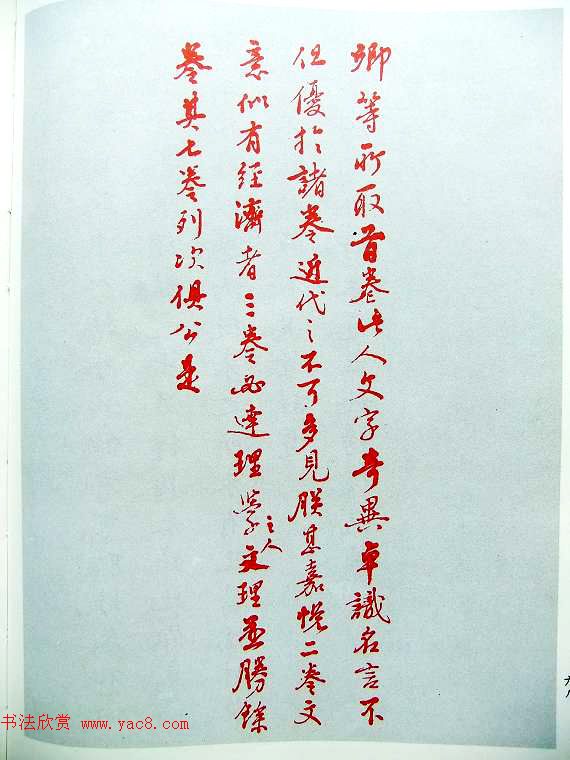 卿等所取首卷此人文字奇異卓識名言不
但優於諸卷近代之不可多見朕甚嘉悅二卷文
意似有經濟者三卷必達理學之人文理並勝餘
卷其七卷列次俱公是
书法欣赏 www.yac8.com